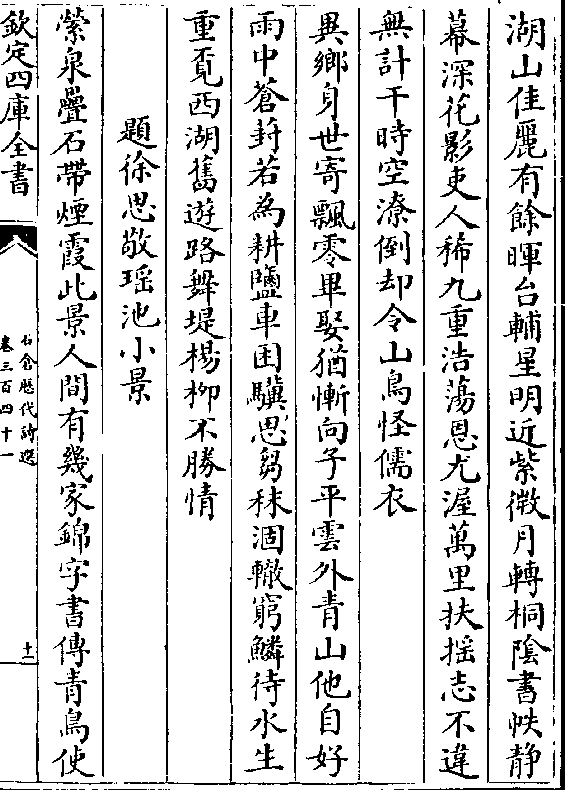 湖山佳麗有餘暉台輔星明近紫微月轉桐隂書帙静
幕深花影吏人稀九重浩蕩恩尤渥萬里扶揺志不違
無計干時空潦倒却令山鳥怪儒衣
異鄉身世寄飄零畢娶猶慚向子平雲外青山他自好
雨中蒼葑若為耕鹽車困驥思芻秣涸轍窮鱗待水生
重覔西湖舊遊路舞堤楊柳不勝情
題徐思敬瑶池小景
縈泉疊石帶煙霞此景人間有幾家錦字書傳青鳥使
欽定四庫全書
石倉歴代詩選
卷三百四十一
十一